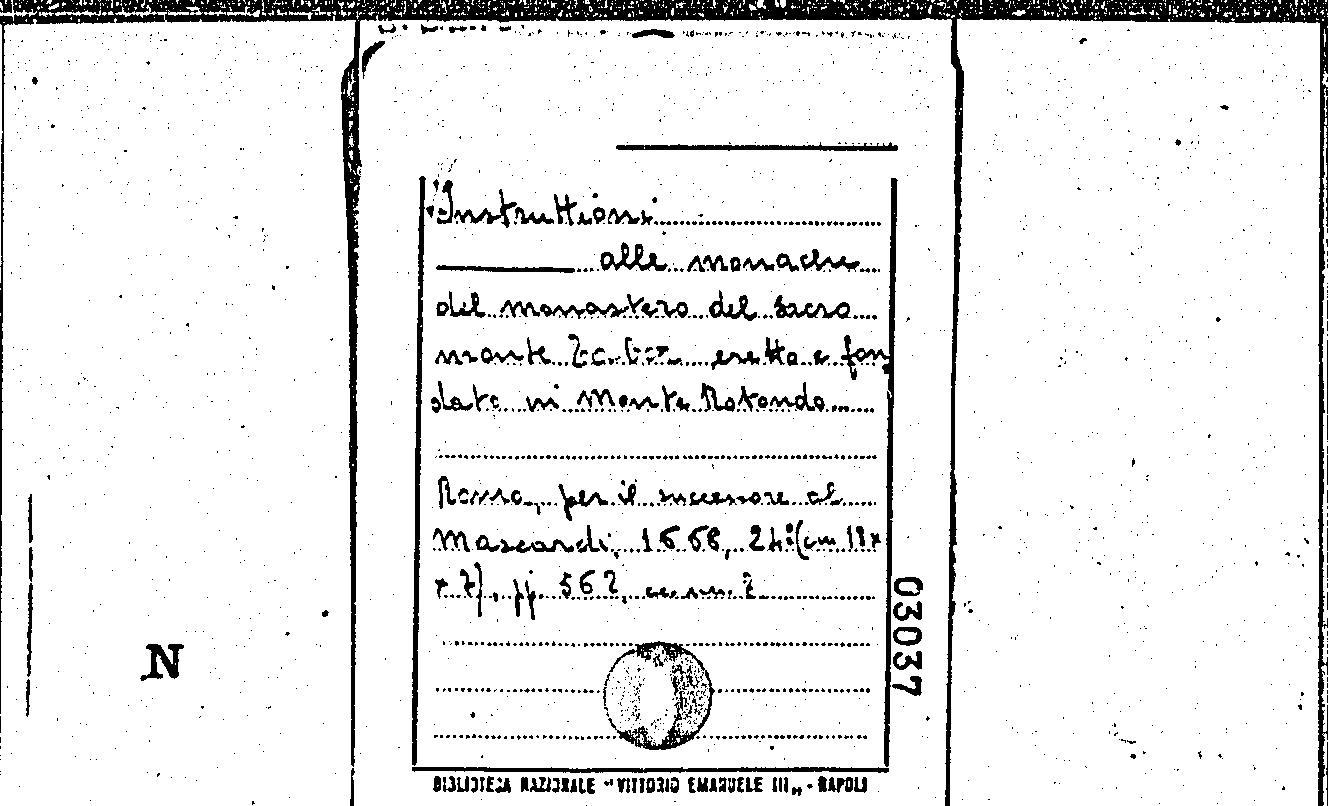 Instruttioni
alle monache
del monastero del Sacro
monte Tabor eretto e fon
dato in Monte Rotondo
Roma, per il successore al
Mascardi, 1668, 24º (cm 18 x
x 7), pp. 562, cc. nn. 2
03037
N
BIBLIOTECA NAZIONALE "VITTORIO EMANUELE III" - NAPOLI